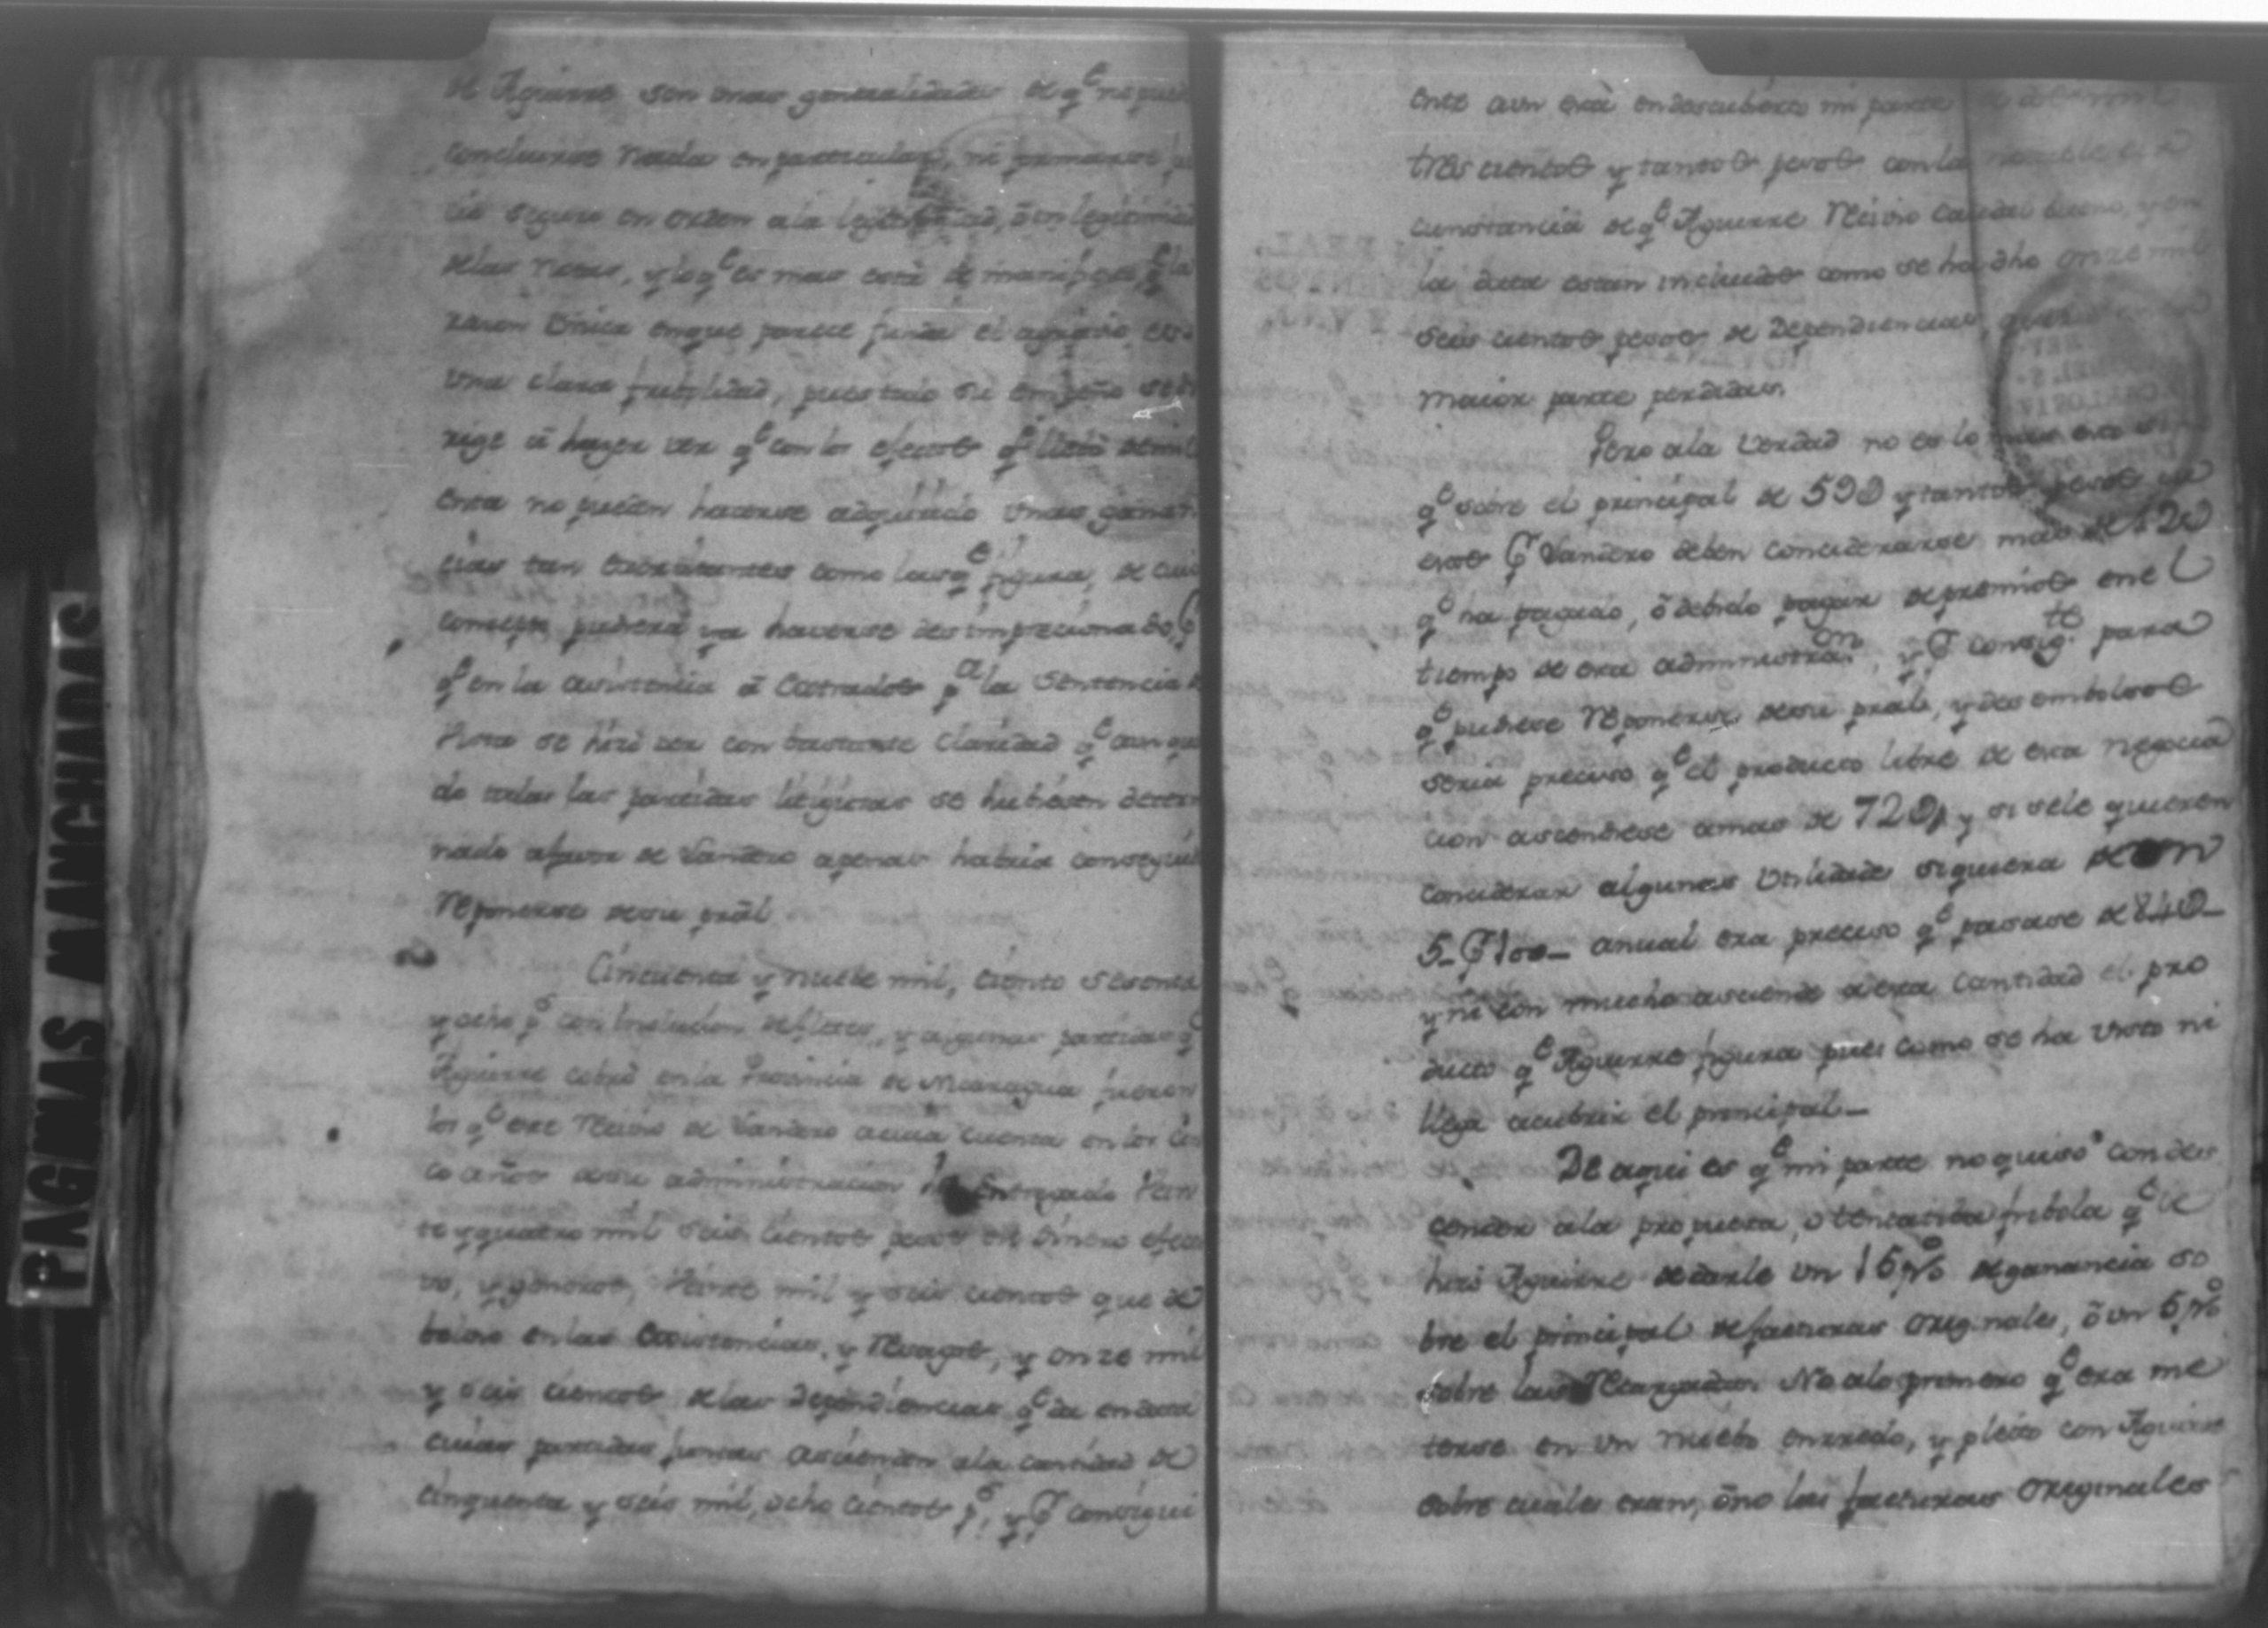 de Aguirre son unas generalidades de q.e no pued
concluirse nada en particular, ni formarse jui
cio seguro en orden ala legitimidad, ó enlegitimidad
delas notas, y lo q.e es mas está de manifiesto q.e la
razon única enque parece funda el agrávio, es
una clara futilidad, pues todo su empeño sedi
rige á hazer ver q.e con los efectos q.e llevó demi
cnta no puedan haverse adquirido unas ganan
cias tan exorvitantes como las q.e figura, de cuio
concepto pudiera ya haverse desimpresionado, p.r
q.e en la asistencia á Estrados p.a la Sentencia de
Vista se hizo ver con bastante claridad q.e aun qua
do todas las partidas litigiosas se hubiesen determi
nado afavor de Vandero apenas habria conseguido
reponerse desu prâl
Cincuenta y nueve mil, ciento sesenta
y ocho p.s con inclucion defletes, y algunas partidas q.e
Aguirre cobró enla Provincia de Nicaragua fueron
los q.e ese recivio de Vandero acuia cuenta en los cin
co años desu administracion ha entregado vein
te y quatro mil seis cientos pesos en dinero efecti
vo, y generos, veinte mil y seis cientos que de
bolvio enlas existencias, y resagos, y onze mil
y seis cientos delas dependiencias q.e da endata
cuias partidas juntas ascienden ala cantidad de
cinquenta y seis mil, ocho cientos p.s, y p.r consigui
ente aun está endescubierto mi parte
tres cientos y tantos pesos con la notable cir
cunstancia de q.e Aguirre recivio caudal bueno, y en
la data estan incluidos como se ha dho onze mil
seis cientos pesos de Dependiencias
maior parte perdidas.
Pero ala verdad no es lo
q.e sobre el principal de 59D y tantos pesos
esos p.r Vandero deben considerarse mas de 12D
q.e ha pagado, ó debido pagar depremios enel
tiempo de esa administra.on, y p.r consig.te para
q.e pudiese reponerse desu prâl, y desembolsos
seria preciso q.e el producto libre de esa negocia
cion ascendiese amas de 72Dp y si sele quieren
considerar algunas utilidades siquiera de un
5_ p.r 100_ anual era preciso q.e pasase de 84D_
y ni con mucho asciende aesa cantidad el pro
ducto q.e Aguirre figura pues como se ha visto ni
llega acubrir el principal_
De aqui es q.e mi parte no quiso condes
cender ala propuesta, ó tentativa fribola q.e le
hizo Aguirre dedarle un 15 p% deganancia so
bre el principal defacturas originales, ó un 5 p%
sobre las recargadas. No alo primero q.e era me
terse en un nuebo enrredo, y pleito con Aguirre
sobre cuales eran, óno las facturas originales
PAGINAS MANCHADAS